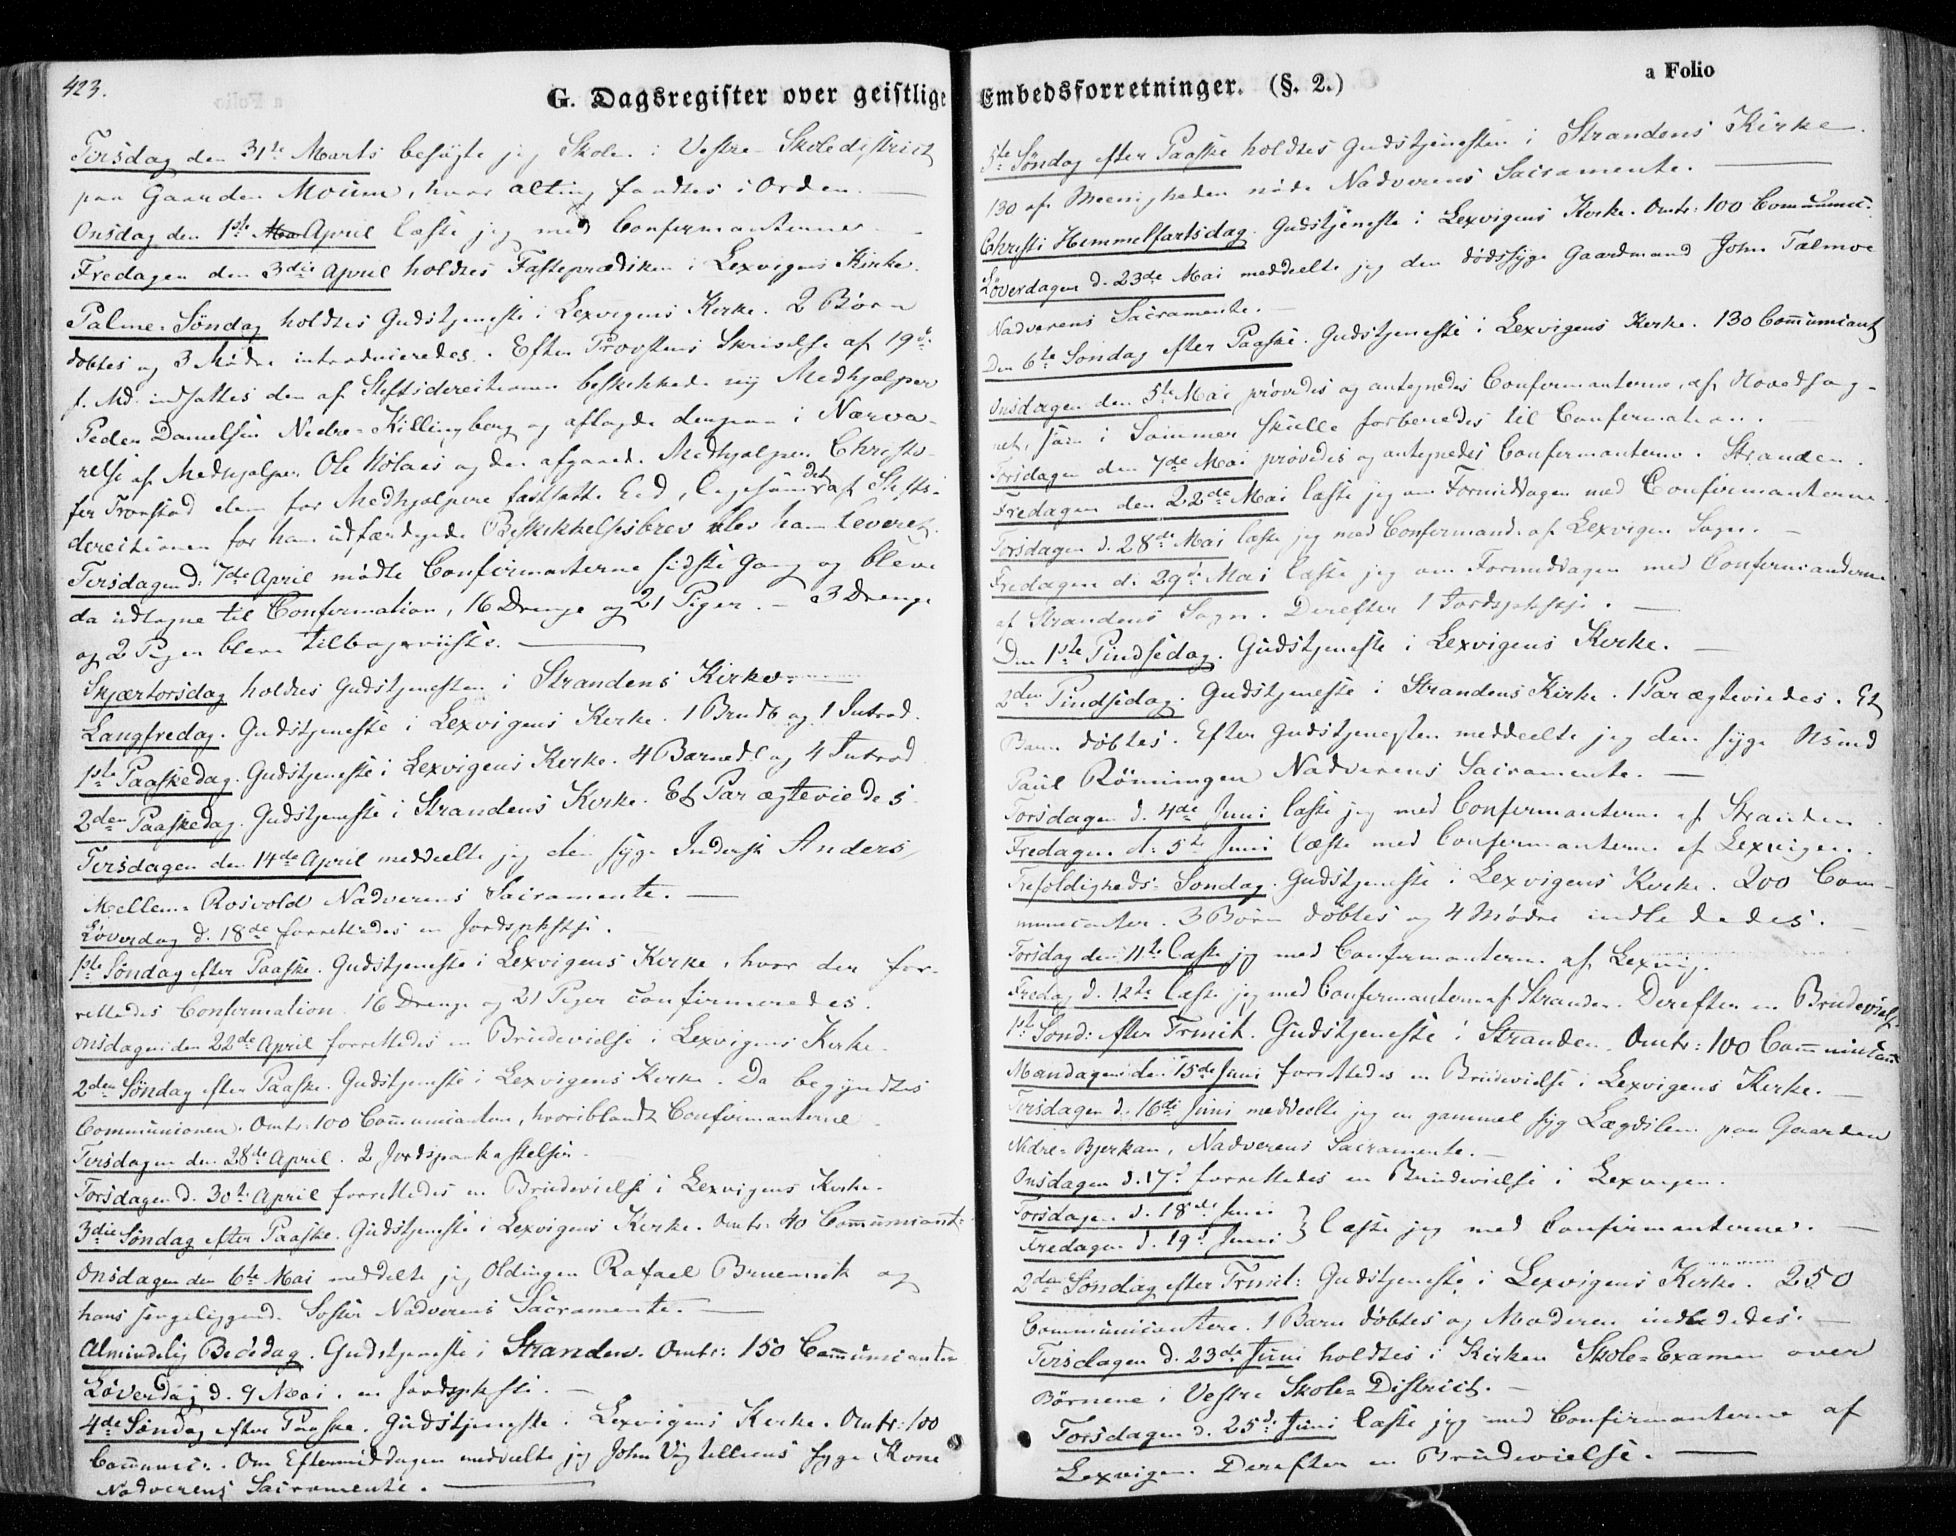 423.
G. Dagsregister over geistlige Embedsforretninger. (§. 2.)
a Folio
Tirsdag den 31te Marts besøgte jeg Skolen i Vestre Skoledistrict
paa Gaarden Mouum, hvor alting fandtes i Orden. —
Onsdag den 1ste April læste jeg med Confirmanterne —
Fredagen den 3die April holdtes Fasteprædiken i Lexvigens Kirke.
Palme-Søndag holdtes Gudstjeneste i Lexvigens Kirke. 2 Børn
døbtes og 3 Mødre introduceredes. Efter Provstens Skrivelse af 19d:
f. Md. indsattes den af Stiftsdirectionen beskikkede ny Medhjælper
Peder Danielsen Nedre-Killingberg og aflagde dengang i Nærvæ-
relse af Medhjælper Ole Kolaas og den afgaaede Medhjælper Christo-
fer Tronstad den for Medhjælpere fastsatte Eed, ligesom det af Stifts-
directionen for ham udfærdigede Beskikkelsesbrev blev ham leveret.
Tirsdagen d: 7de April mødte Confirmanterne sidste Gang og bleve
da udtagne til Confirmation, 16 Drenge og 21 Piger. — 3 Drenge
og 2 Piger bleve tilbageviiste. —
Skjærtorsdag holdtes Gudstjenesten i Strandens Kirke.
Langfredag. Gudstjeneste i Lexvigens Kirke. 1 Barnd. og 1 Introd.
1ste Paaskedag. Gudstjeneste i Lexvigens Kirke. 4 Barned. og 4 Introd.
2den Paaskedag. Gudstjeneste i Strandens Kirke. Et Par ægteviedes.
Tirsdagen den 14de April meddeelte jeg den syge Inderst Anders
Mellem-Rosvold Nadverens Sacramente. —
Løverdag d. 18de forrettedes en Jordspkstse.
1ste Søndag efter Paaske. Gudstjeneste i Lexvigens Kirke, hvor der for-
rettedes Confirmation. 16 Drenge og 21 Piger confirmeredes.
Onsdagen den 22de April forrettedes en Brudevielse i Lexvigens Kirke.
2den Søndag efter Paaske. Gudstjeneste i Lexvigens Kirke. Da begyndtes
Communionen. Omtr. 100 Communicanter, hvoriblandt Confirmanterne
Tirsdagen den 28de April. 2 Jordspaakastelser.
Torsdagen d. 30te April forrettedes en Brudevielse i Lexvigens Kirke.
3die Søndag efter Paaske. Gudstjeneste i Lexvigens Kirke. Omtr: 40 Communicant:
Onsdagen den 6te Mai meddelte jeg Oldingen Rafael Bruemsik og
hans sengeliggend. Søster Nadverens Sacramente. —
Almindelig Bededag. Gudstjeneste i Stranden. Omtr: 150 Communicanter
Løverdag d. 9 Mai. en Jordspkste. —
4de Søndag efter Paaske. Gudstjeneste i Lexvigens Kirke. Omtr: 100
Communic:. Om Eftermiddagen meddeelte jeg John Vigtilliens syge Kone
Nadverens Sacramente. —
5te Søndag efter Paaske holdtes Gudstjenesten i Strandens Kirke.
130 af Meenigheden nøde Nadverens Sacramente.
Christi Himmelfartsdag. Gudstjeneste i Lexvigens Kirke. Omtr: 100 Communic:
Løverdagen d. 23de Mai meddeelte jeg den dødssyge Gaardmand John Talmoe
Nadverens Sacramente. —
Den 6te Søndag efter Paaske. Gudstjeneste i Lexvigens Kirke. 130 Communicant
Onsdagen den 5te Mai prøvedes og antegnedes Confirmanterne af Hovedsog-
net, som i Sommer skulle forberedes til Confirmation. —
Torsdagen den 7de Mai prøvedes og antegnedes Confirmanterne i Stranden.
Fredagen den 22de Mai læste jeg om Formiddagen med Confirmanterne
Torsdagen d. 28de Mai læste jeg med Confirmand. af Lexvigen Sogn. —
Fredagen d. 29de Mai læste jeg om Formiddagen med Confirmanderne
af Strandens Sogn. Derefter 1 Jordspkstse. —
Den 1ste Pindsedag. Gudstjeneste i Lexvigens Kirke. —
2den Pindsedag. Gudstjeneste i Strandens Kirke. 1 Par ægteviedes. Et
Barn døbtes. Efter Gudstjenesten meddeelte jeg den syge Huusmd
Paul Rönningen Nadverens Sacramente. —
Torsdagen d. 4de Juni læste jeg med Confirmanterne af Stranden.
Fredagen d. 5te Juni læste med Confirmanterne af Lexvigen.
Trefoldigheds-Søndag. Gudstjeneste i Lexvigens Kirke. 200 Com-
municanter. 3 Børn døbtes og 4 Mødre indlededes. —
Torsdag den 11te læste jeg med Confirmanterne af Lexvig.
Fredag d. 12te læste jeg med Confirmanterne af Stranden. Derefter en Brudevielse
1ste Sønd: efter Trinit. Gudstjeneste i Stranden. Omtr: 100 Communicant
Mandagen den 15de Juni forrettedes en Brudevielse i Lexvigens Kirke. —
Tirsdagen d. 16de Juni meddeelte jeg en gammel syg Lægdslem paa Gaarden
Nedre-Bjerkan, Nadverens Sacramente. —
Onsdagen d. 17d forrettedes en Brudevielse i Lexvigen.
Torsdagen d. 18de Juni
Fredagen d. 19d Juni } læste jeg med Confirmanterne. —
2den Søndag efter Trinit: Gudstjeneste i Lexvigens Kirke. 250
Communicantere. 1 Barn døbtes og Moderen indlededes. —
Tirsdagen d. 23de Juni holdtes i Kirken Skole-Examen over
Børnene i Vestre Skole-District. —
Torsdagen d. 25d: Juni læste jeg med Confirmanterne af
Lexvigen. Derefter en Brudevielse. —